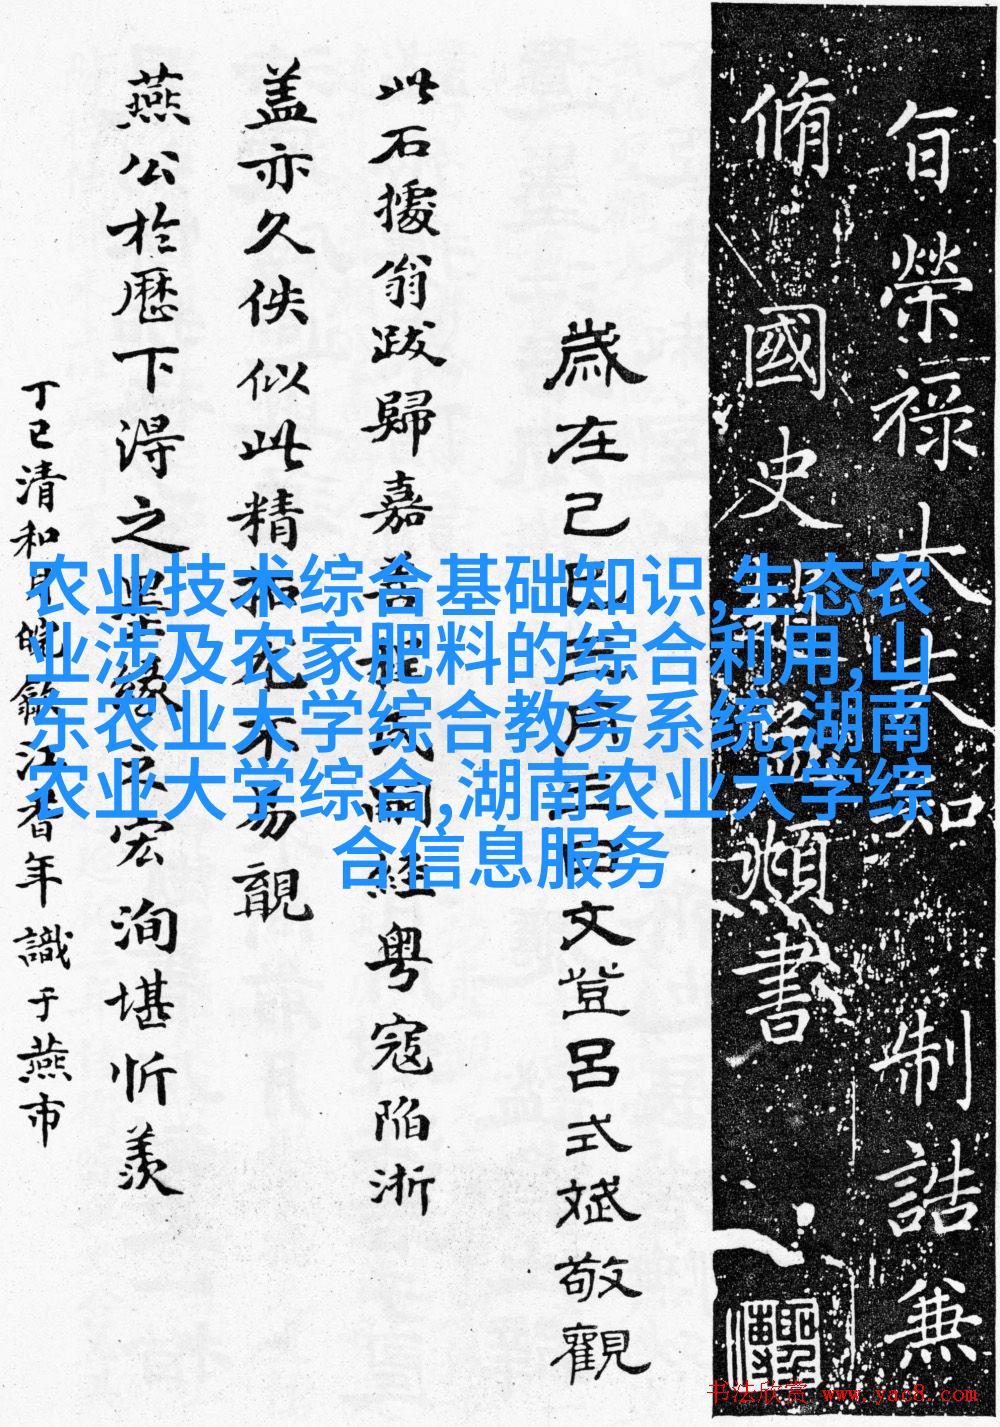 旨榮祿大夫知 制誥兼
脩國史 頫書
歲在己 文登呂式斌敬觀
此石據翁跋歸嘉善 經粤寇陷浙
蓋亦久佚似此精拓尤不易覯
燕公於歷下得之 宏洵堪忻羨
丁巳清和月 江 年識于燕市
农业技术综合基础知识,生态农
业涉及农家肥料的综合利用,山
东农业大学综合教务系统,湖南
农业大学综合,湖南农业大学综
合信息服务
书法欣赏 www.yac8.com